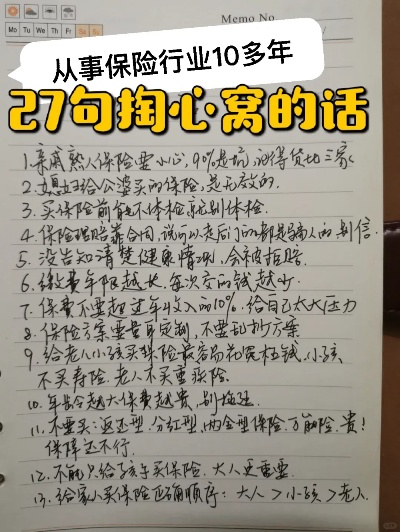 Memo No.
Mo Tu We Th Fr Sa Su
从事保险行业10多年
27句掏心窝的话
1.亲戚熟人保险要小心,90%是坑,记得货比三家
2.媳妇给公婆买的保险,是无效的.
3.买保险前能不体检就别体检.
4.保险理赔靠合同,说可以走后门的都是骗人的别信.
5.没告知清楚健康情况,会被拒赔
6.缴费年限越长,每次交的钱越少.
7.保费不要超过年收入的10%.给自己太大压力
8.保险方案要量身定制,不要乱抄方案
9.给老人小孩买保险最容易花冤枉钱.小孩
不买寿险.老人不买重疾险.
10.年龄越大保费越贵,别拖延.
11.不要买:返还型.分红型,两全型保险.万能险.贵!
保障还不行.
12.不能只给孩子买保险.大人更重要
13.给家人买保险正确顺序:大人>小孩>老人